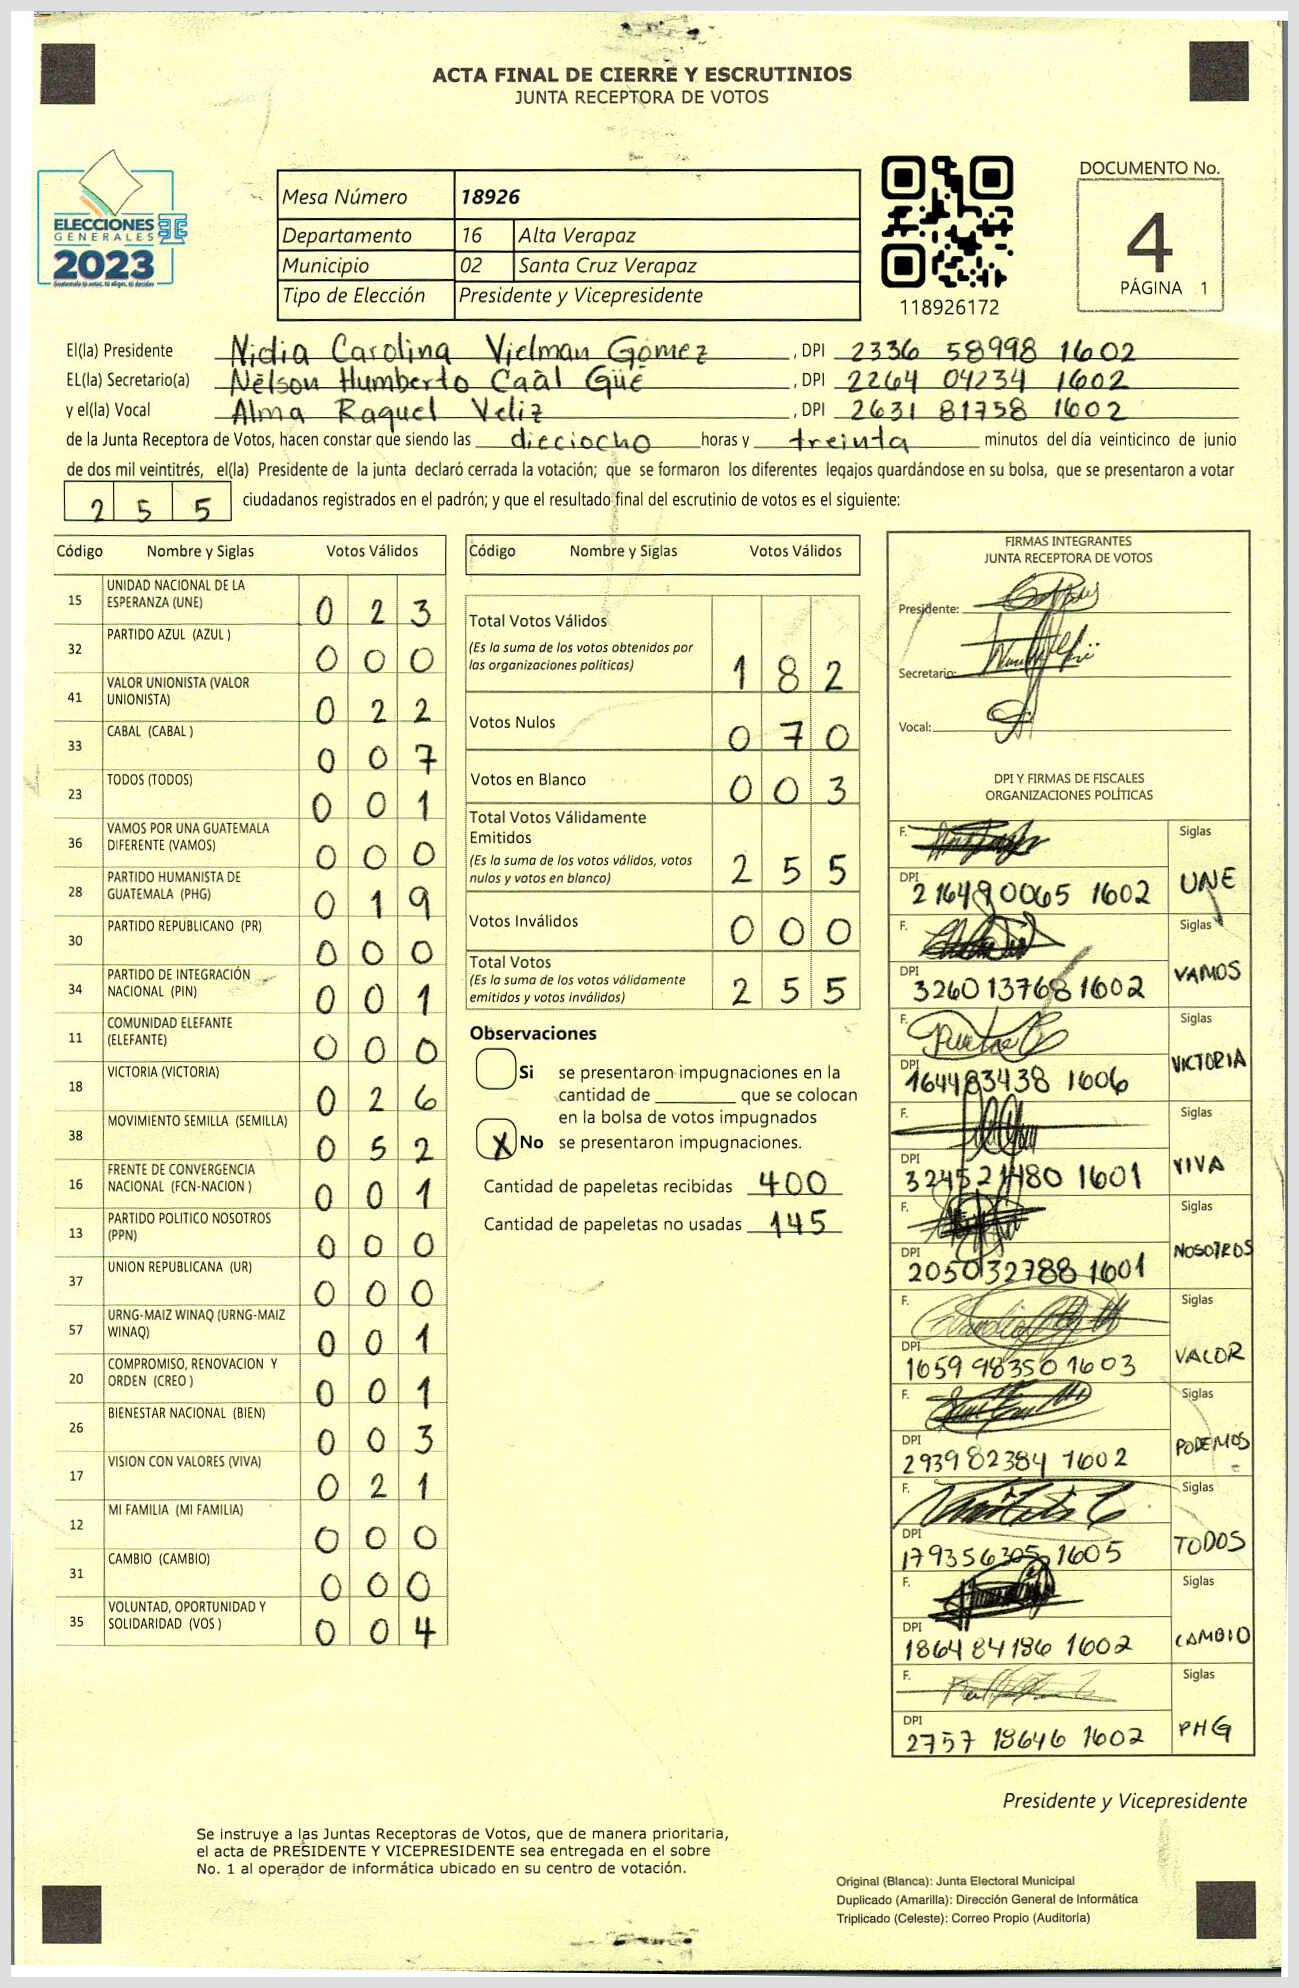 ACTA FINAL DE CIERRE Y ESCRUTINIOS
JUNTA RECEPTORA DE VOTOS
ELECCIONES
GENERALES
2023
Mesa Número 18926
Departamento 16 Alta Verapaz
Municipio 02 Santa Cruz Verapaz
Tipo de Elección Presidente y Vicepresidente
118926172
DOCUMENTO No.
4
PÁGINA 1
El(la) Presidente Nidia Carolina Vielman Gómez , DPI 2336 58998 1602
EL(la) Secretario(a) Nelson Humberto Caàl Güe , DPI 2264 04234 1602
y el(la) Vocal Alma Raquel Veliz , DPI 2631 81758 1602
de la Junta Receptora de Votos, hacen constar que siendo las dieciocho horas y treinta minutos del día veinticinco de junio
de dos mil veintitrés, el(la) Presidente de la junta declaró cerrada la votación; que se formaron los diferentes legajos guardándose en su bolsa, que se presentaron a votar
2 5 5 ciudadanos registrados en el padrón; y que el resultado final del escrutinio de votos es el siguiente:
Código Nombre y Siglas Votos Válidos
15 UNIDAD NACIONAL DE LA
ESPERANZA (UNE) 0 2 3
32 PARTIDO AZUL (AZUL ) 0 0 0
41 VALOR UNIONISTA (VALOR
UNIONISTA) 0 2 2
33 CABAL (CABAL ) 0 0 7
23 TODOS (TODOS) 0 0 1
36 VAMOS POR UNA GUATEMALA
DIFERENTE (VAMOS) 0 0 0
28 PARTIDO HUMANISTA DE
GUATEMALA (PHG) 0 1 9
30 PARTIDO REPUBLICANO (PR) 0 0 0
34 PARTIDO DE INTEGRACIÓN
NACIONAL (PIN) 0 0 1
11 COMUNIDAD ELEFANTE
(ELEFANTE) 0 0 0
18 VICTORIA (VICTORIA) 0 2 6
38 MOVIMIENTO SEMILLA (SEMILLA) 0 5 2
16 FRENTE DE CONVERGENCIA
NACIONAL (FCN-NACION ) 0 0 1
13 PARTIDO POLITICO NOSOTROS
(PPN) 0 0 0
37 UNION REPUBLICANA (UR) 0 0 0
57 URNG-MAIZ WINAQ (URNG-MAIZ
WINAQ) 0 0 1
20 COMPROMISO, RENOVACION Y
ORDEN (CREO ) 0 0 1
26 BIENESTAR NACIONAL (BIEN) 0 0 3
17 VISION CON VALORES (VIVA) 0 2 1
12 MI FAMILIA (MI FAMILIA) 0 0 0
31 CAMBIO (CAMBIO) 0 0 0
35 VOLUNTAD, OPORTUNIDAD Y
SOLIDARIDAD (VOS ) 0 0 4
Código Nombre y Siglas Votos Válidos
Total Votos Válidos
(Es la suma de los votos obtenidos por
las organizaciones políticas) 1 8 2
Votos Nulos 0 7 0
Votos en Blanco 0 0 3
Total Votos Válidamente
Emitidos
(Es la suma de los votos válidos, votos
nulos y votos en blanco) 2 5 5
Votos Inválidos 0 0 0
Total Votos
(Es la suma de los votos válidamente
emitidos y votos inválidos) 2 5 5
Observaciones
Si se presentaron impugnaciones en la
cantidad de ________ que se colocan
en la bolsa de votos impugnados
X No se presentaron impugnaciones.
Cantidad de papeletas recibidas 400
Cantidad de papeletas no usadas 145
FIRMAS INTEGRANTES
JUNTA RECEPTORA DE VOTOS
Presidente:
Secretario:
Vocal:
DPI Y FIRMAS DE FISCALES
ORGANIZACIONES POLÍTICAS
F. Siglas
DPI 216490065 1602 UNE
F. Siglas
DPI 3260 13768 1602 VAMOS
F. Siglas
DPI 164483438 1606 VICTORIA
F. Siglas
DPI 324521480 1601 VIVA
F. Siglas
DPI 205032788 1601 NOSOTROS
F. Siglas
DPI 1659 98350 1603 VALOR
F. Siglas
DPI 293982384 1602 PODEMOS
F. Siglas
DPI 179356305 1605 TODOS
F. Siglas
DPI 1864 84186 1602 CAMBIO
F. Siglas
DPI 2757 18646 1602 PHG
Presidente y Vicepresidente
Se instruye a las Juntas Receptoras de Votos, que de manera prioritaria,
el acta de PRESIDENTE Y VICEPRESIDENTE sea entregada en el sobre
No. 1 al operador de informática ubicado en su centro de votación.
Original (Blanca): Junta Electoral Municipal
Duplicado (Amarilla): Dirección General de Informática
Triplicado (Celeste): Correo Propio (Auditoría)